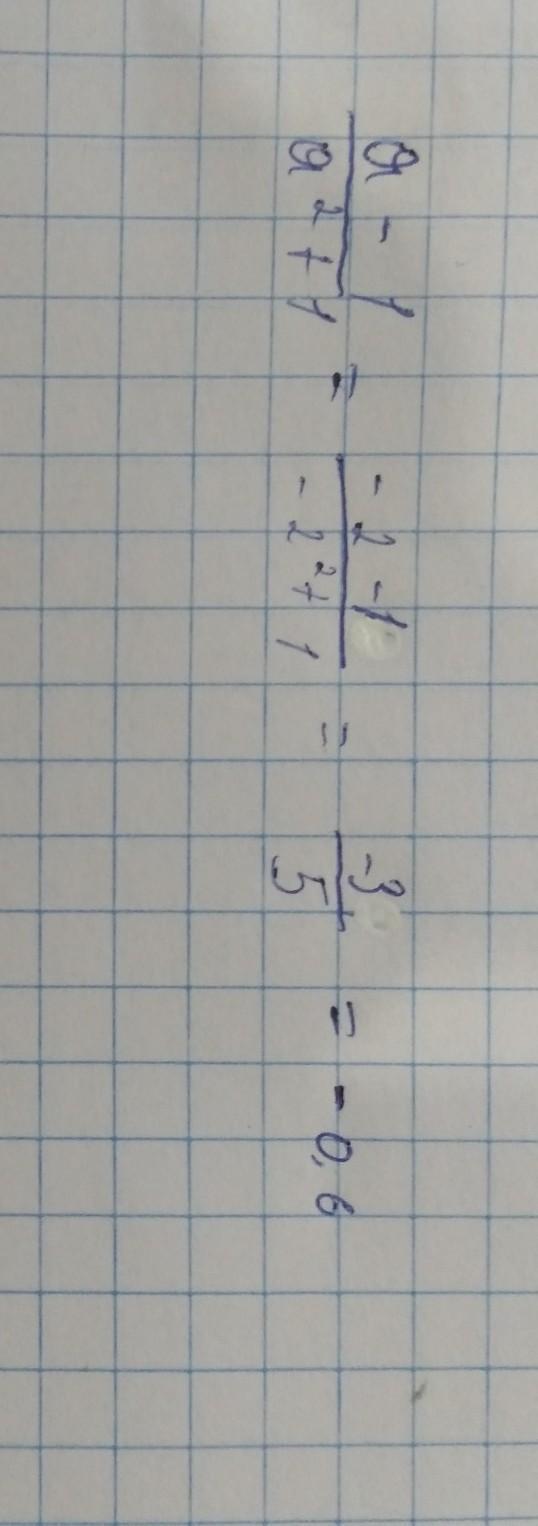 a - 1 / a² + 1 = -2 - 1 / -2² + 1 = -3 / 5 = -0,6